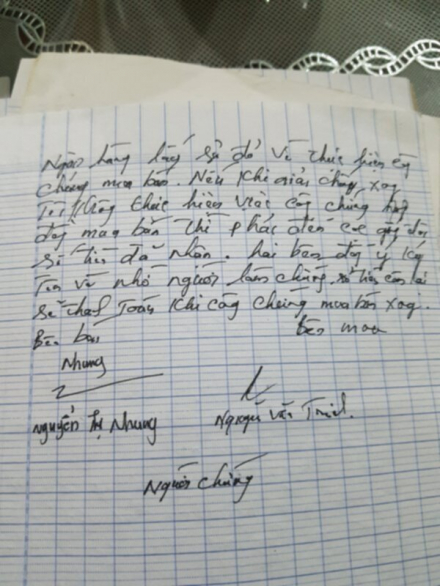 Ngân hàng lấy sổ đỏ về thực hiện công
chứng mua bán. Nếu khi giải chấp xong
Tôi không thực hiện việc công chứng hợp
đồng mua bán thì phải đền cọc gấp đôi
số tiền đã nhận. hai bên đồng ý ký
Tên và nhờ người làm chứng. số tiền còn lại
sẽ thanh Toán khi công chứng mua bán xong.
Bên bán Bên mua
Nhung
Nguyễn Thị Nhung Nguyễn Văn
Người chứng